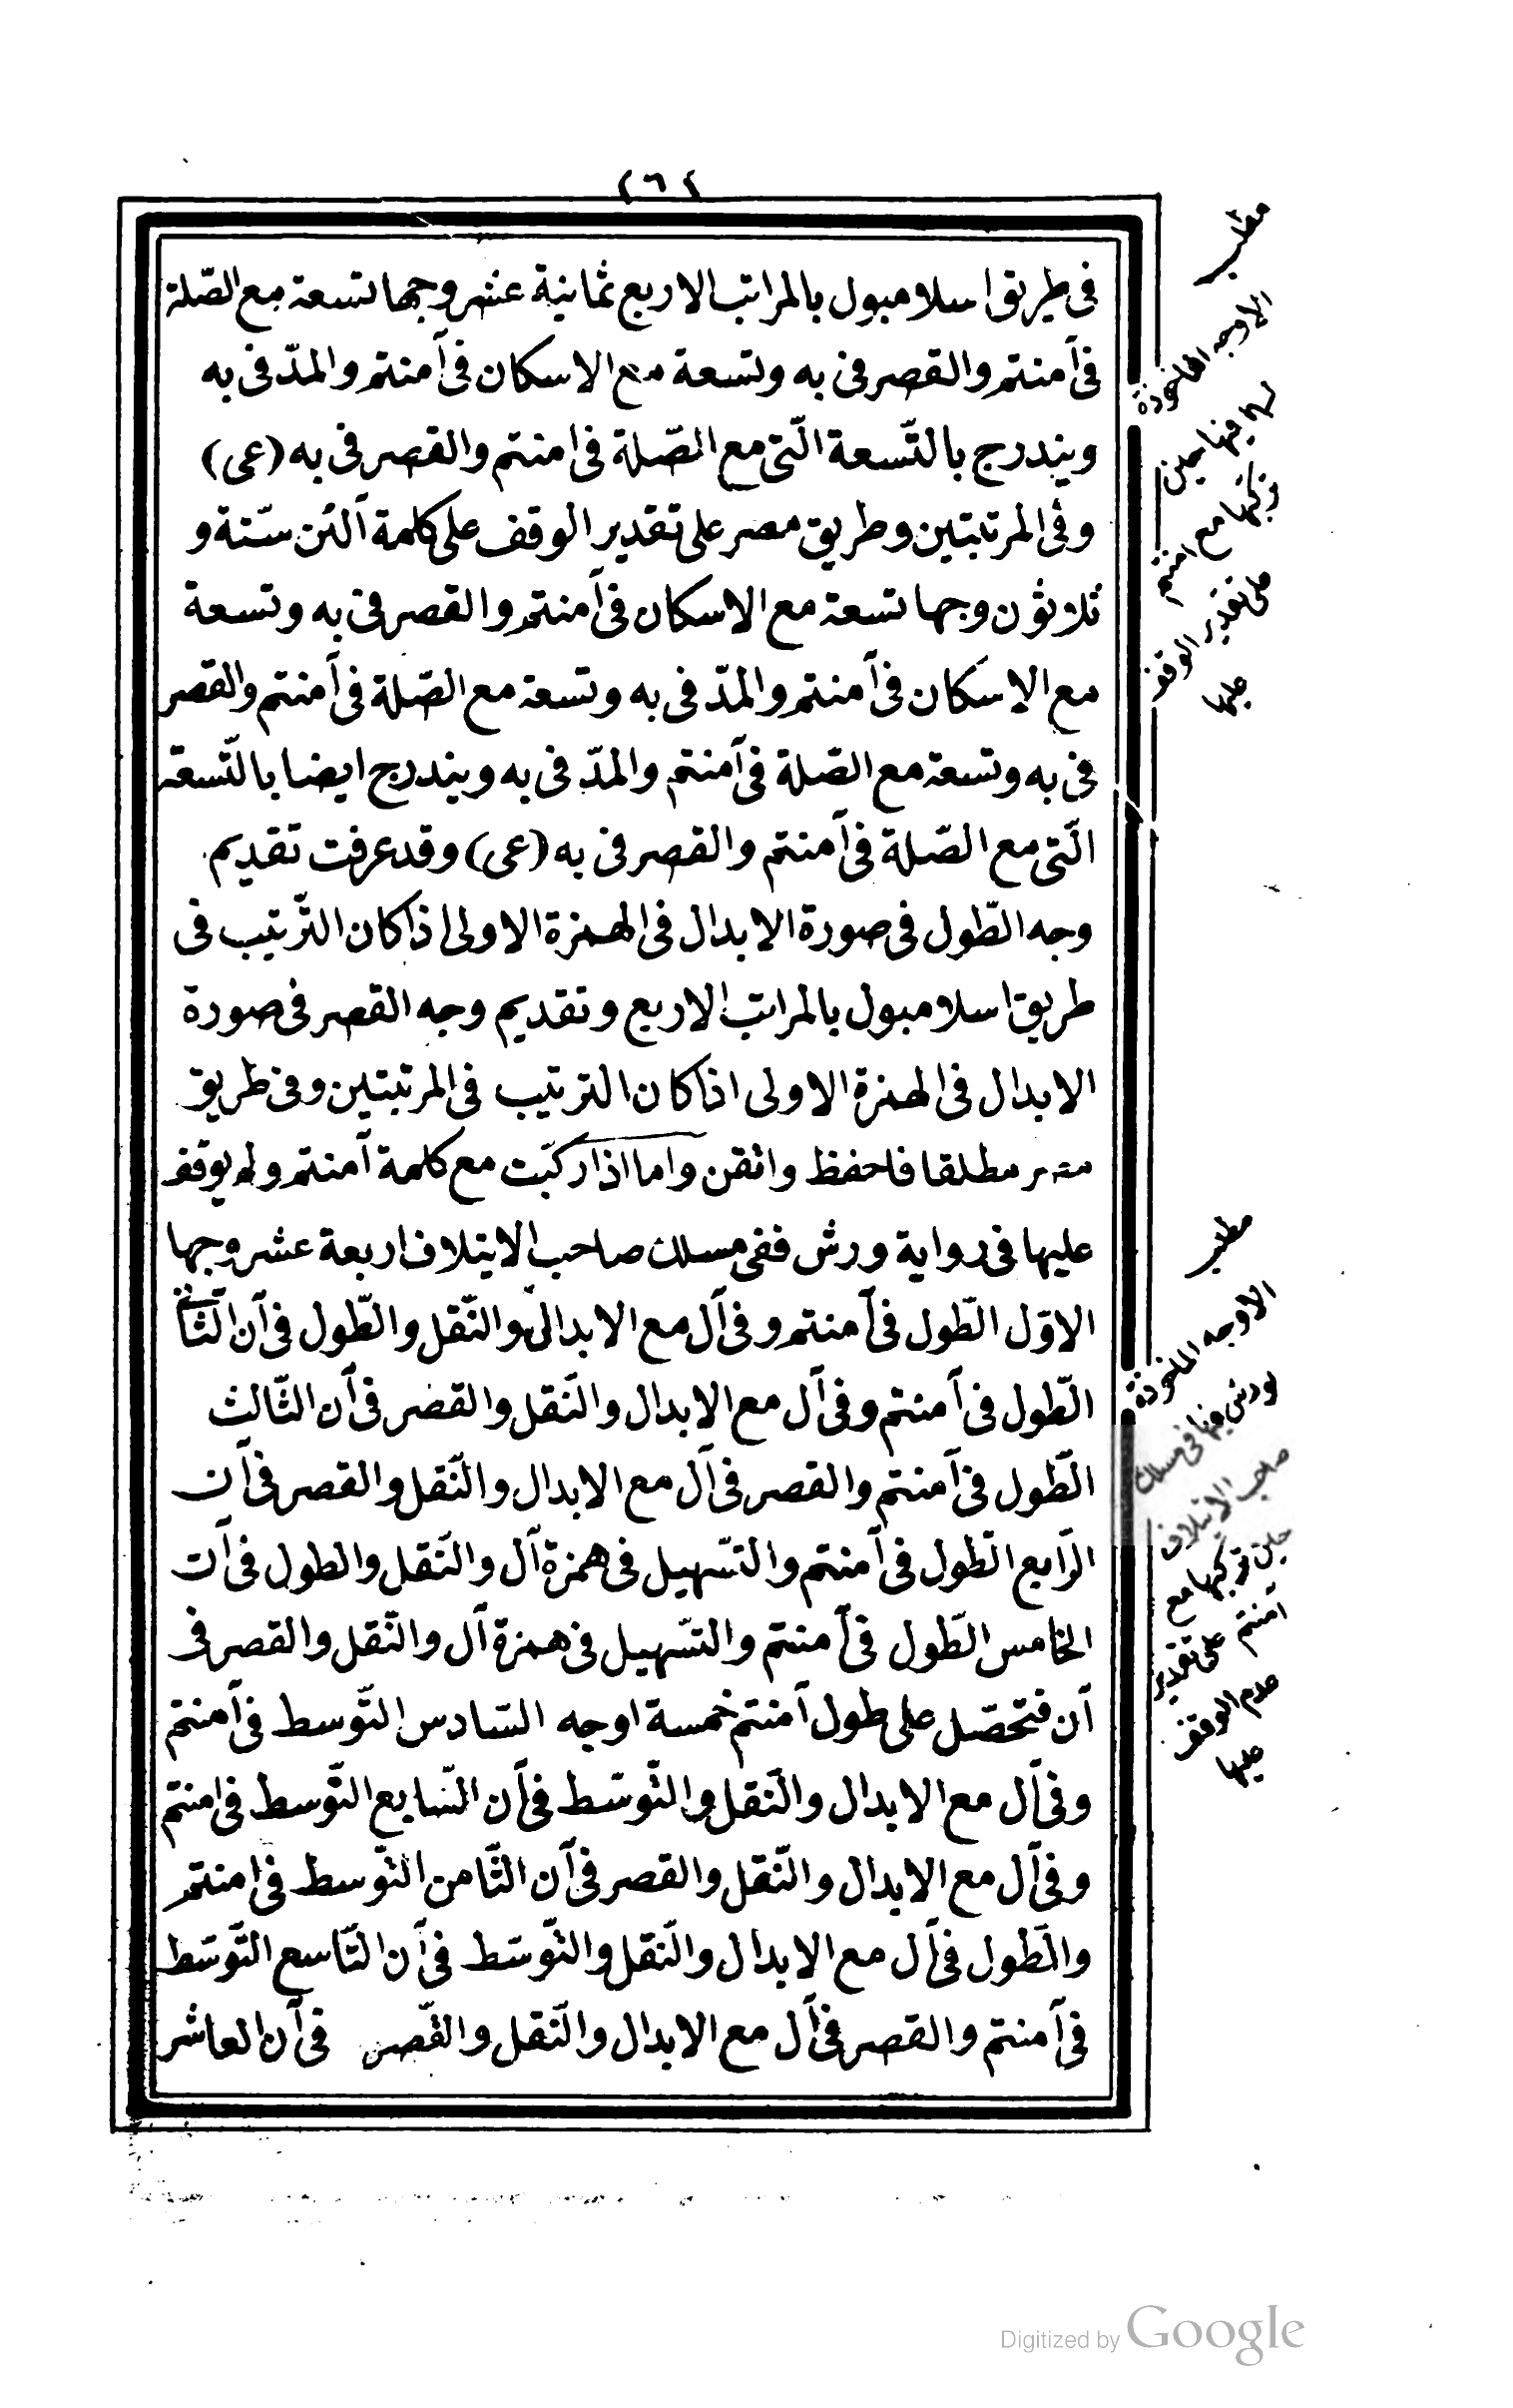 (٦)
فى طريق اسلامبول بالمراتب الاربع ثمانية عشر وجها تسعة مع الصّلة
فى آمنتم والقصر فى به وتسعة مع الاسكان فى آمنتم والمدّ فى به
ويندرج بالتّسعة الّتى مع الصّلة فى امنتم والقصر فى به (عى)
وفى المرتبتين وطريق مصر على تقدير الوقف على كلمة آلئن ستّة و
ثلاثون وجها تسعة مع الاسكان فى آمنتم والقصر فى به وتسعة
مع الاسكان فى آمنتم والمدّ فى به وتسعة مع الصّلة فى آمنتم والقصر
فى به وتسعة مع الصّلة فى آمنتم والمدّ فى به ويندرج ايضا بالتّسعة
الّتى مع الصّلة فى آمنتم والقصر فى به (عى) وقد عرفت تقديم
وجه الطّول فى صورة الابدال فى الهمزة الاولى اذا كان التّرتيب فى
طريق اسلامبول بالمراتب الاربع وتقديم وجه القصر فى صورة
الابدال فى الهمزة الاولى اذا كان الترتيب فى المرتبتين وفى طريق
مصر مطلقا فاحفظ واتقن واما اذا ركّبت مع كلمة آمنتم ولم يوقف
عليها فى رواية ورش ففى مسلك صاحب الايتلاف اربعة عشر وجها
الاوّل الطّول فى آمنتم وفى آل مع الابدال والنّقل والطّول فى آن الثّانى
الطّول فى آمنتم وفى آل مع الابدال والنّقل والقصر فى آن الثّالث
الطّول فى آمنتم والقصر فى آل مع الابدال والنّقل والقصر فى آن
الرّابع الطّول فى آمنتم والتّسهيل فى همزة آل والنّقل والطول فى آن
الخامس الطّول فى آمنتم والتّسهيل فى همزة آل والنّقل والقصر فى
آن فتحصّل على طول آمنتم خمسة اوجه السّادس التّوسط فى آمنتم
وفى آل مع الابدال والنّقل والتّوسّط فى آن السّابع التّوسط فى امنتم
وفى آل مع الابدال والنّقل والقصر فى آن الثّامن التّوسط فى امنتم
والطّول فى آل مع الابدال والنّقل والتّوسّط فى آن التّاسع التّوسّط
فى آمنتم والقصر فى آل مع الابدال والنّقل والقصر فى آن العاشر
مطلب
الاوجه المأخوذة
له فيها حين
تركبها مع امنتم
على تقدير الوقف
عليها
مطلب
الاوجه المأخوذة
لورش فيها فى مسلك
صاحب الايتلاف
حين تركبها مع
امنتم على تقدير
عدم الوقف
عليها
Digitized by Google